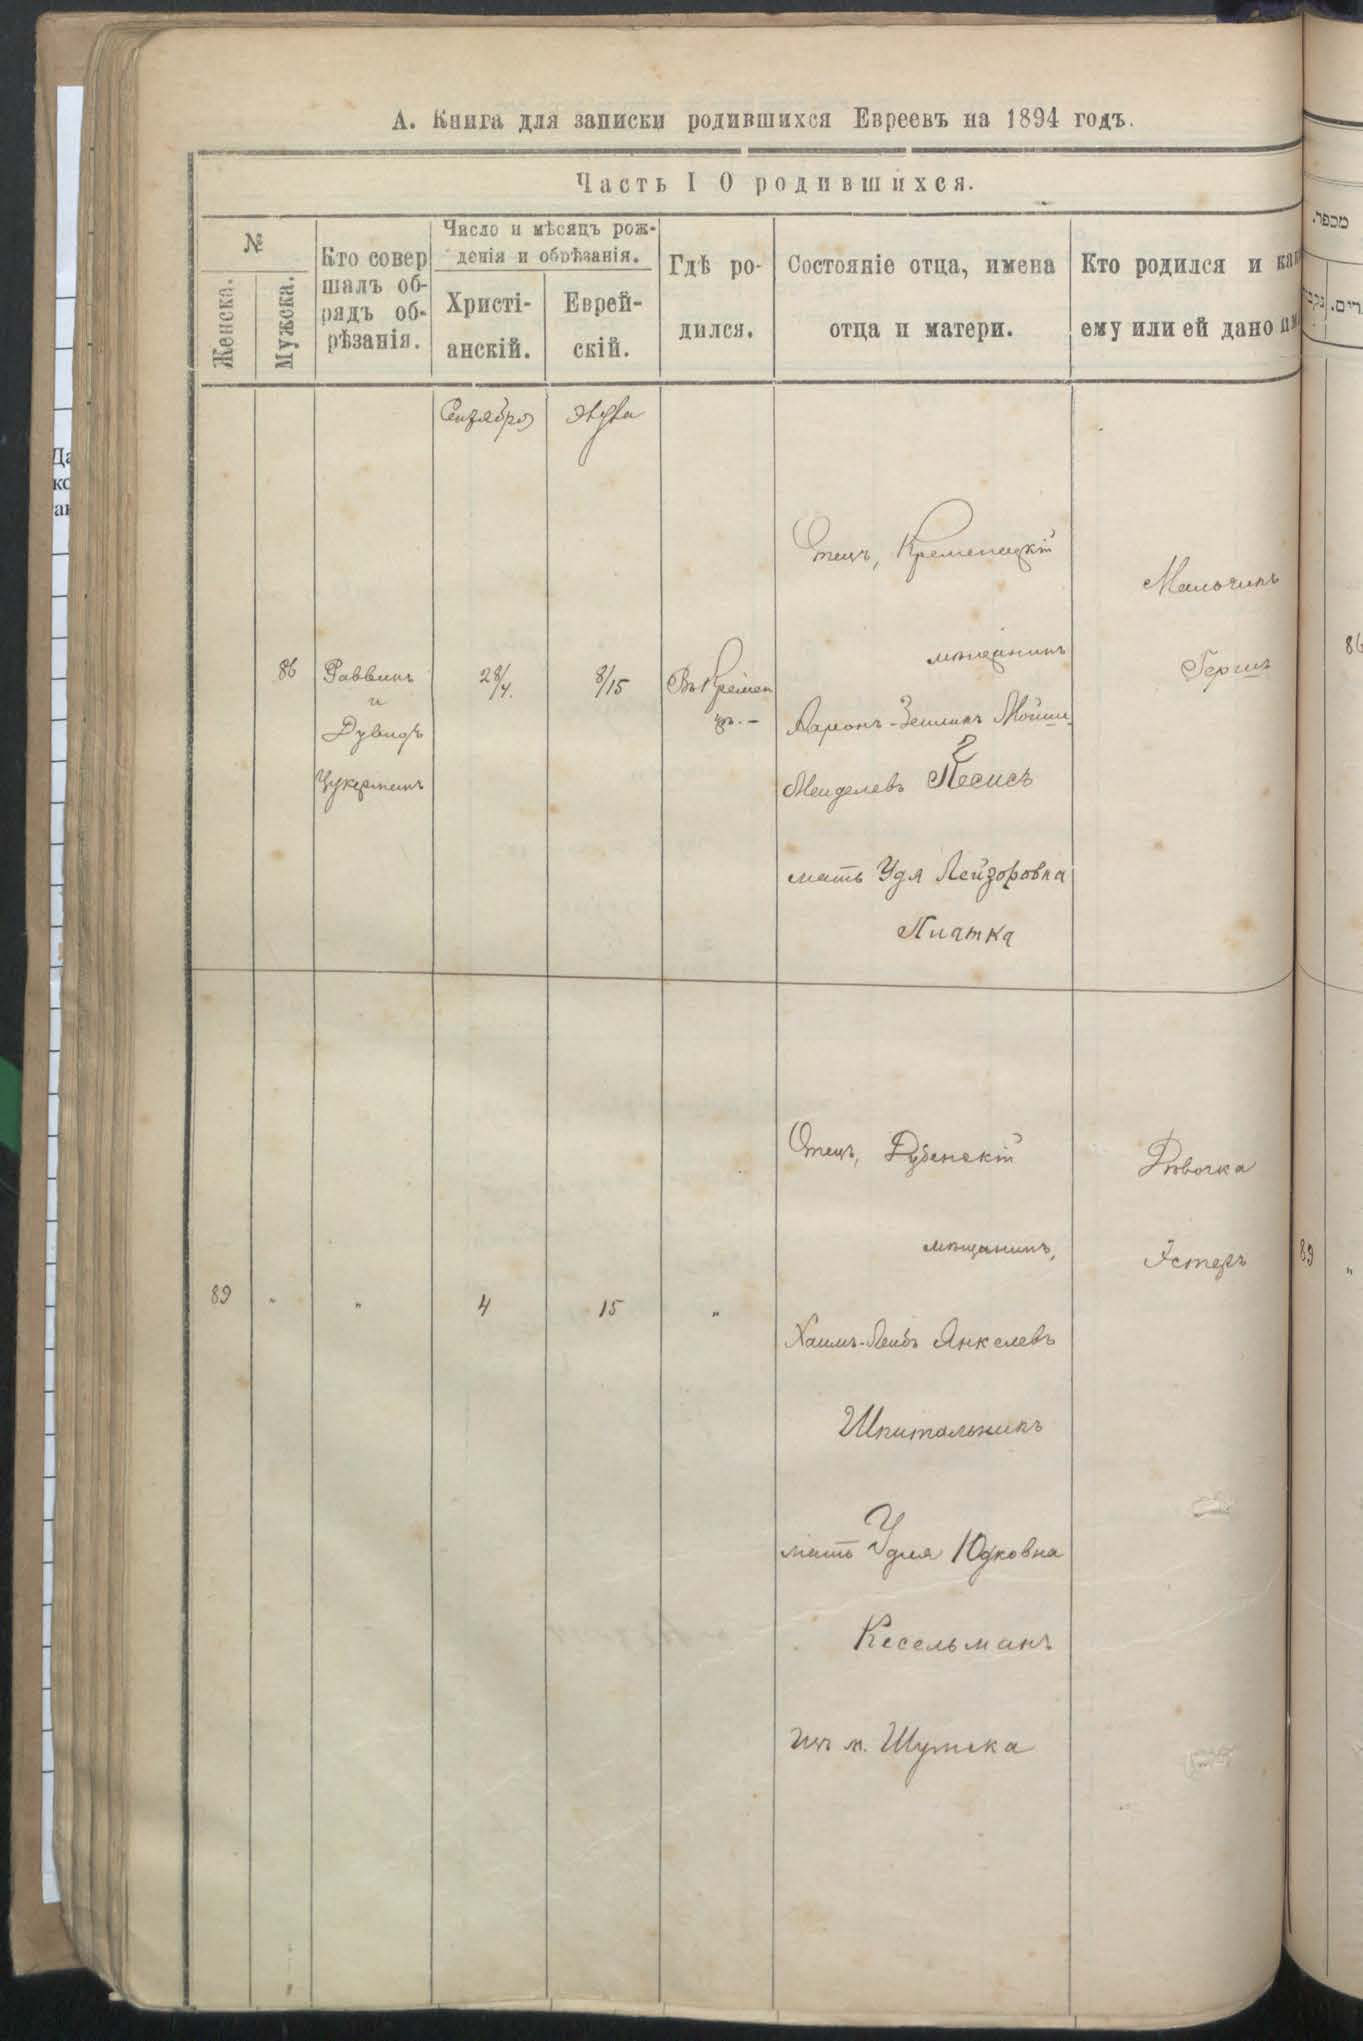 А. Книга для записки родившихся Евреевъ на 1894 годъ.
Часть I О родившихся.
№
Женска.
Мужска.
Кто совер
шалъ об-
рядъ об-
рѣзанія.
Число и мѣсяцъ рож-
денія и обрѣзанія.
Христі-
анскій.
Еврей-
скій.
Гдѣ ро-
дился.
Состояніе отца, имена
отца и матери.
Кто родился и как
ему или ей дано им
Сентября
Элула
86
Раввинъ
и
Дувидъ
Цукерманъ
28/4.
8/15
Въ Кремен
цѣ.-
Отецъ, Кременецкій
мѣщанинъ
Ааронъ-Зейликъ Мойши
Менделевъ Песисъ
мать Удя Лейзоровна
Платка
Мальчикъ
Гершъ
89
"
"
4
15
"
Отецъ, Дубенскій
мѣщанинъ,
Хаимъ-Лейбъ Янкелевъ
Шпитальникъ
мать Удля Юдковна
Кесельманъ
изъ м. Шумска
Дѣвочка
Эстеръ
מכפר.
רים.
86
89
"
Да
ко
ан